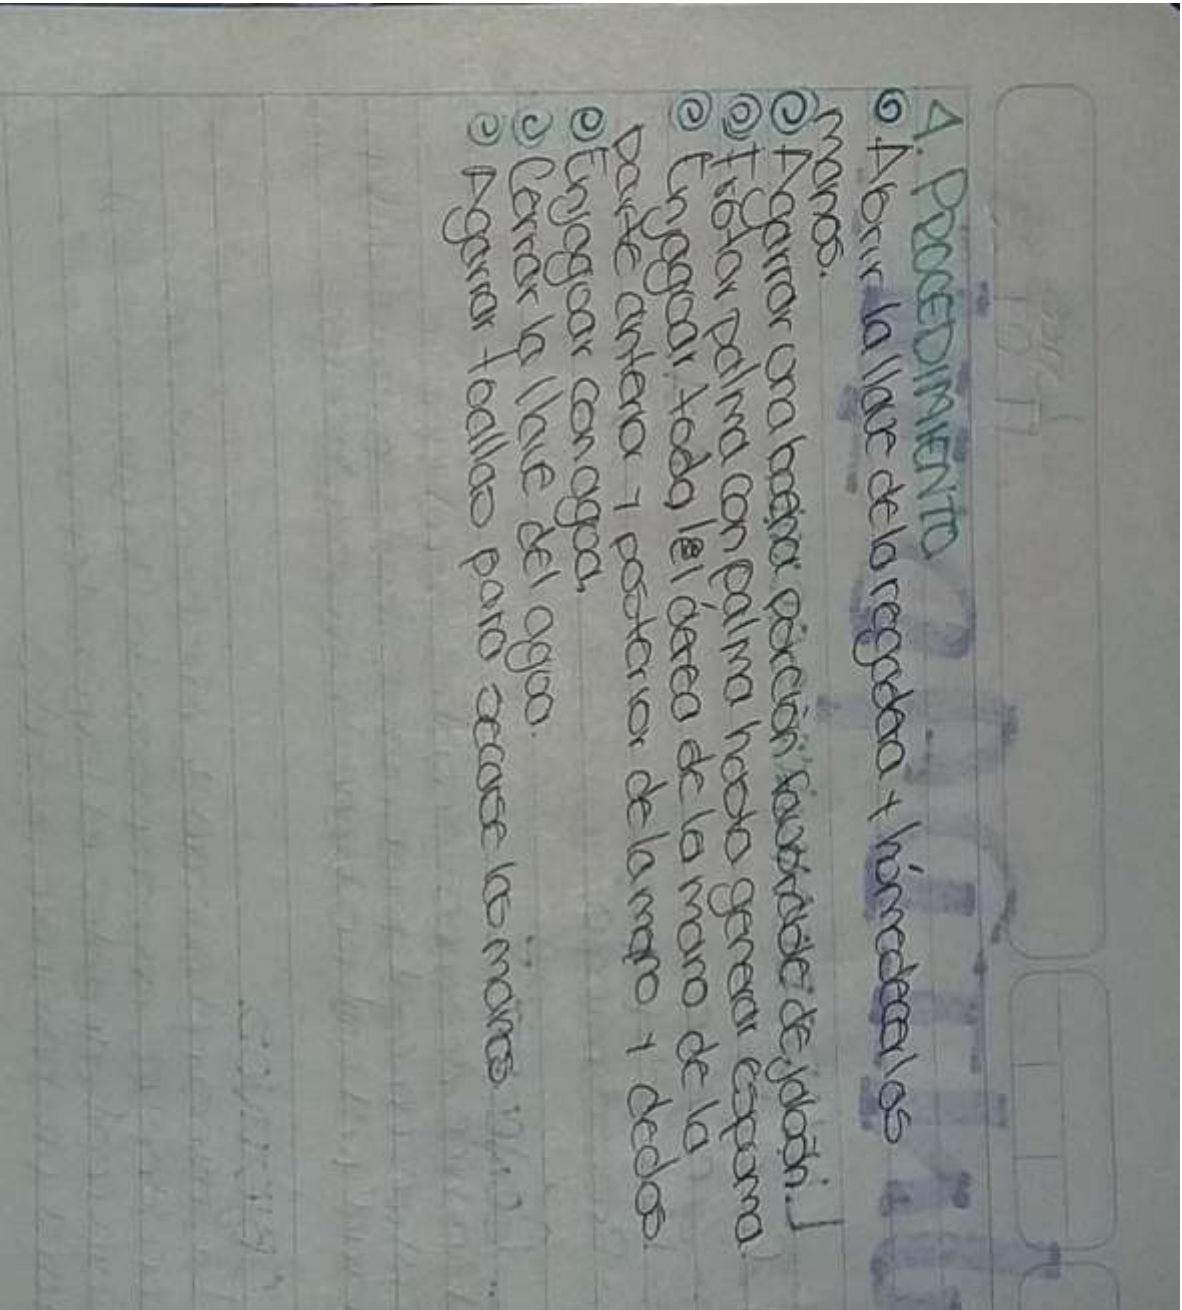 A. PROCEDIMIENTO
Abrir la llave de la regadera y húmedecer las
manos.
Agarrar una buena porción de jabón.
Frotar palma con palma hasta generar espuma.
Enjaguar toda el área de la mano de la
parte anterior y posterior de la mano y dedos.
Enjaguar con agua.
Cerrar la llave del agua.
Agarrar toallas para secarse las manos.